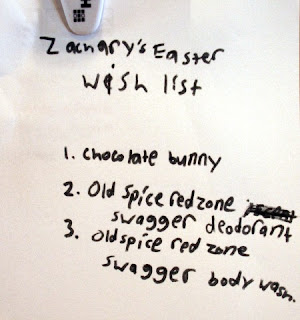 Zachary's Easter
wish list
1. chocolate bunny
2. Old Spice red zone
swagger deodorant
3. Old spice red zone
swagger body wash.